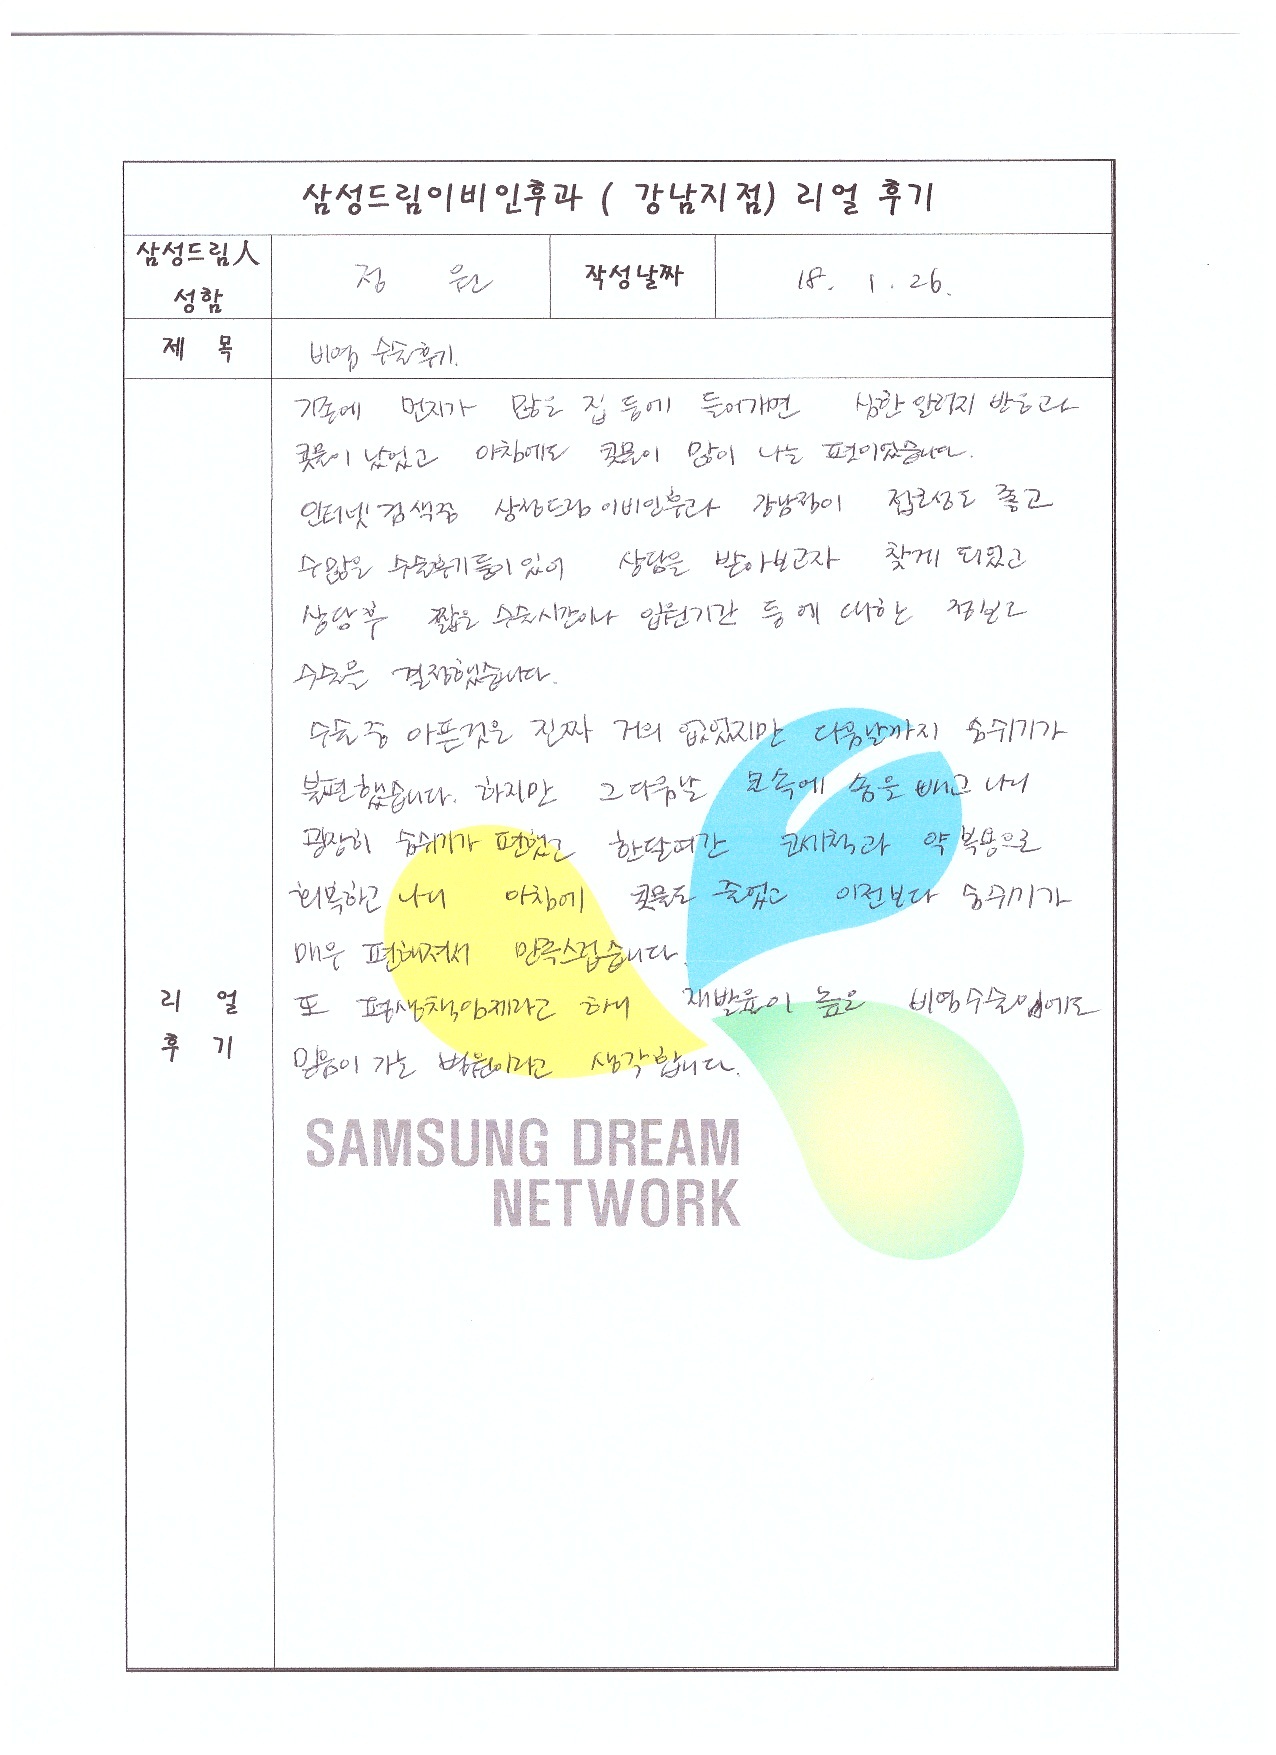 삼성드림이비인후과 ( 강남지점) 리얼 후기
삼성드림人
성함
정 원
작성날짜
18. 1. 26.
제 목
비염 수술후기.
기존에 먼지가 많은 집 등에 들어가면 심한 알러지 반응과
콧물이 났었고 아침에도 콧물이 많이 나는 편이었습니다.
인터넷 검색중 삼성드림 이비인후과 강남점이 접근성도 좋고
수많은 수술후기들이 있어 상담을 받아보고자 찾게 되었고
상담후 짧은 수술시간이나 입원기간 등에 대한 정보로
수술을 결정했습니다.
수술중 아픈것은 진짜 거의 없었지만 다음날까지 숨쉬기가
불편했습니다. 하지만 그다음날 코속에 솜을 빼고 나니
굉장히 숨쉬기가 편했고 한달여간 코세척과 약 복용으로
회복하고 나니 아침에 콧물도 줄었고 이전보다 숨쉬기가
매우 편해져서 만족스럽습니다.
또 평생책임제라고 하니 재발율이 높은 비염수술임에도
믿음이 가는 병원이라고 생각합니다.
리 얼
후 기
SAMSUNG DREAM
NETWORK